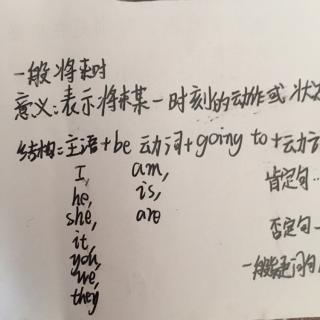 一般将来时
意义:表示将来某一时刻的动作或状
结构=主语+be 动词+going to +动
I, am, 肯定句
he, is,
she, are 否定句
it,
you,
we, 一般疑问句
they